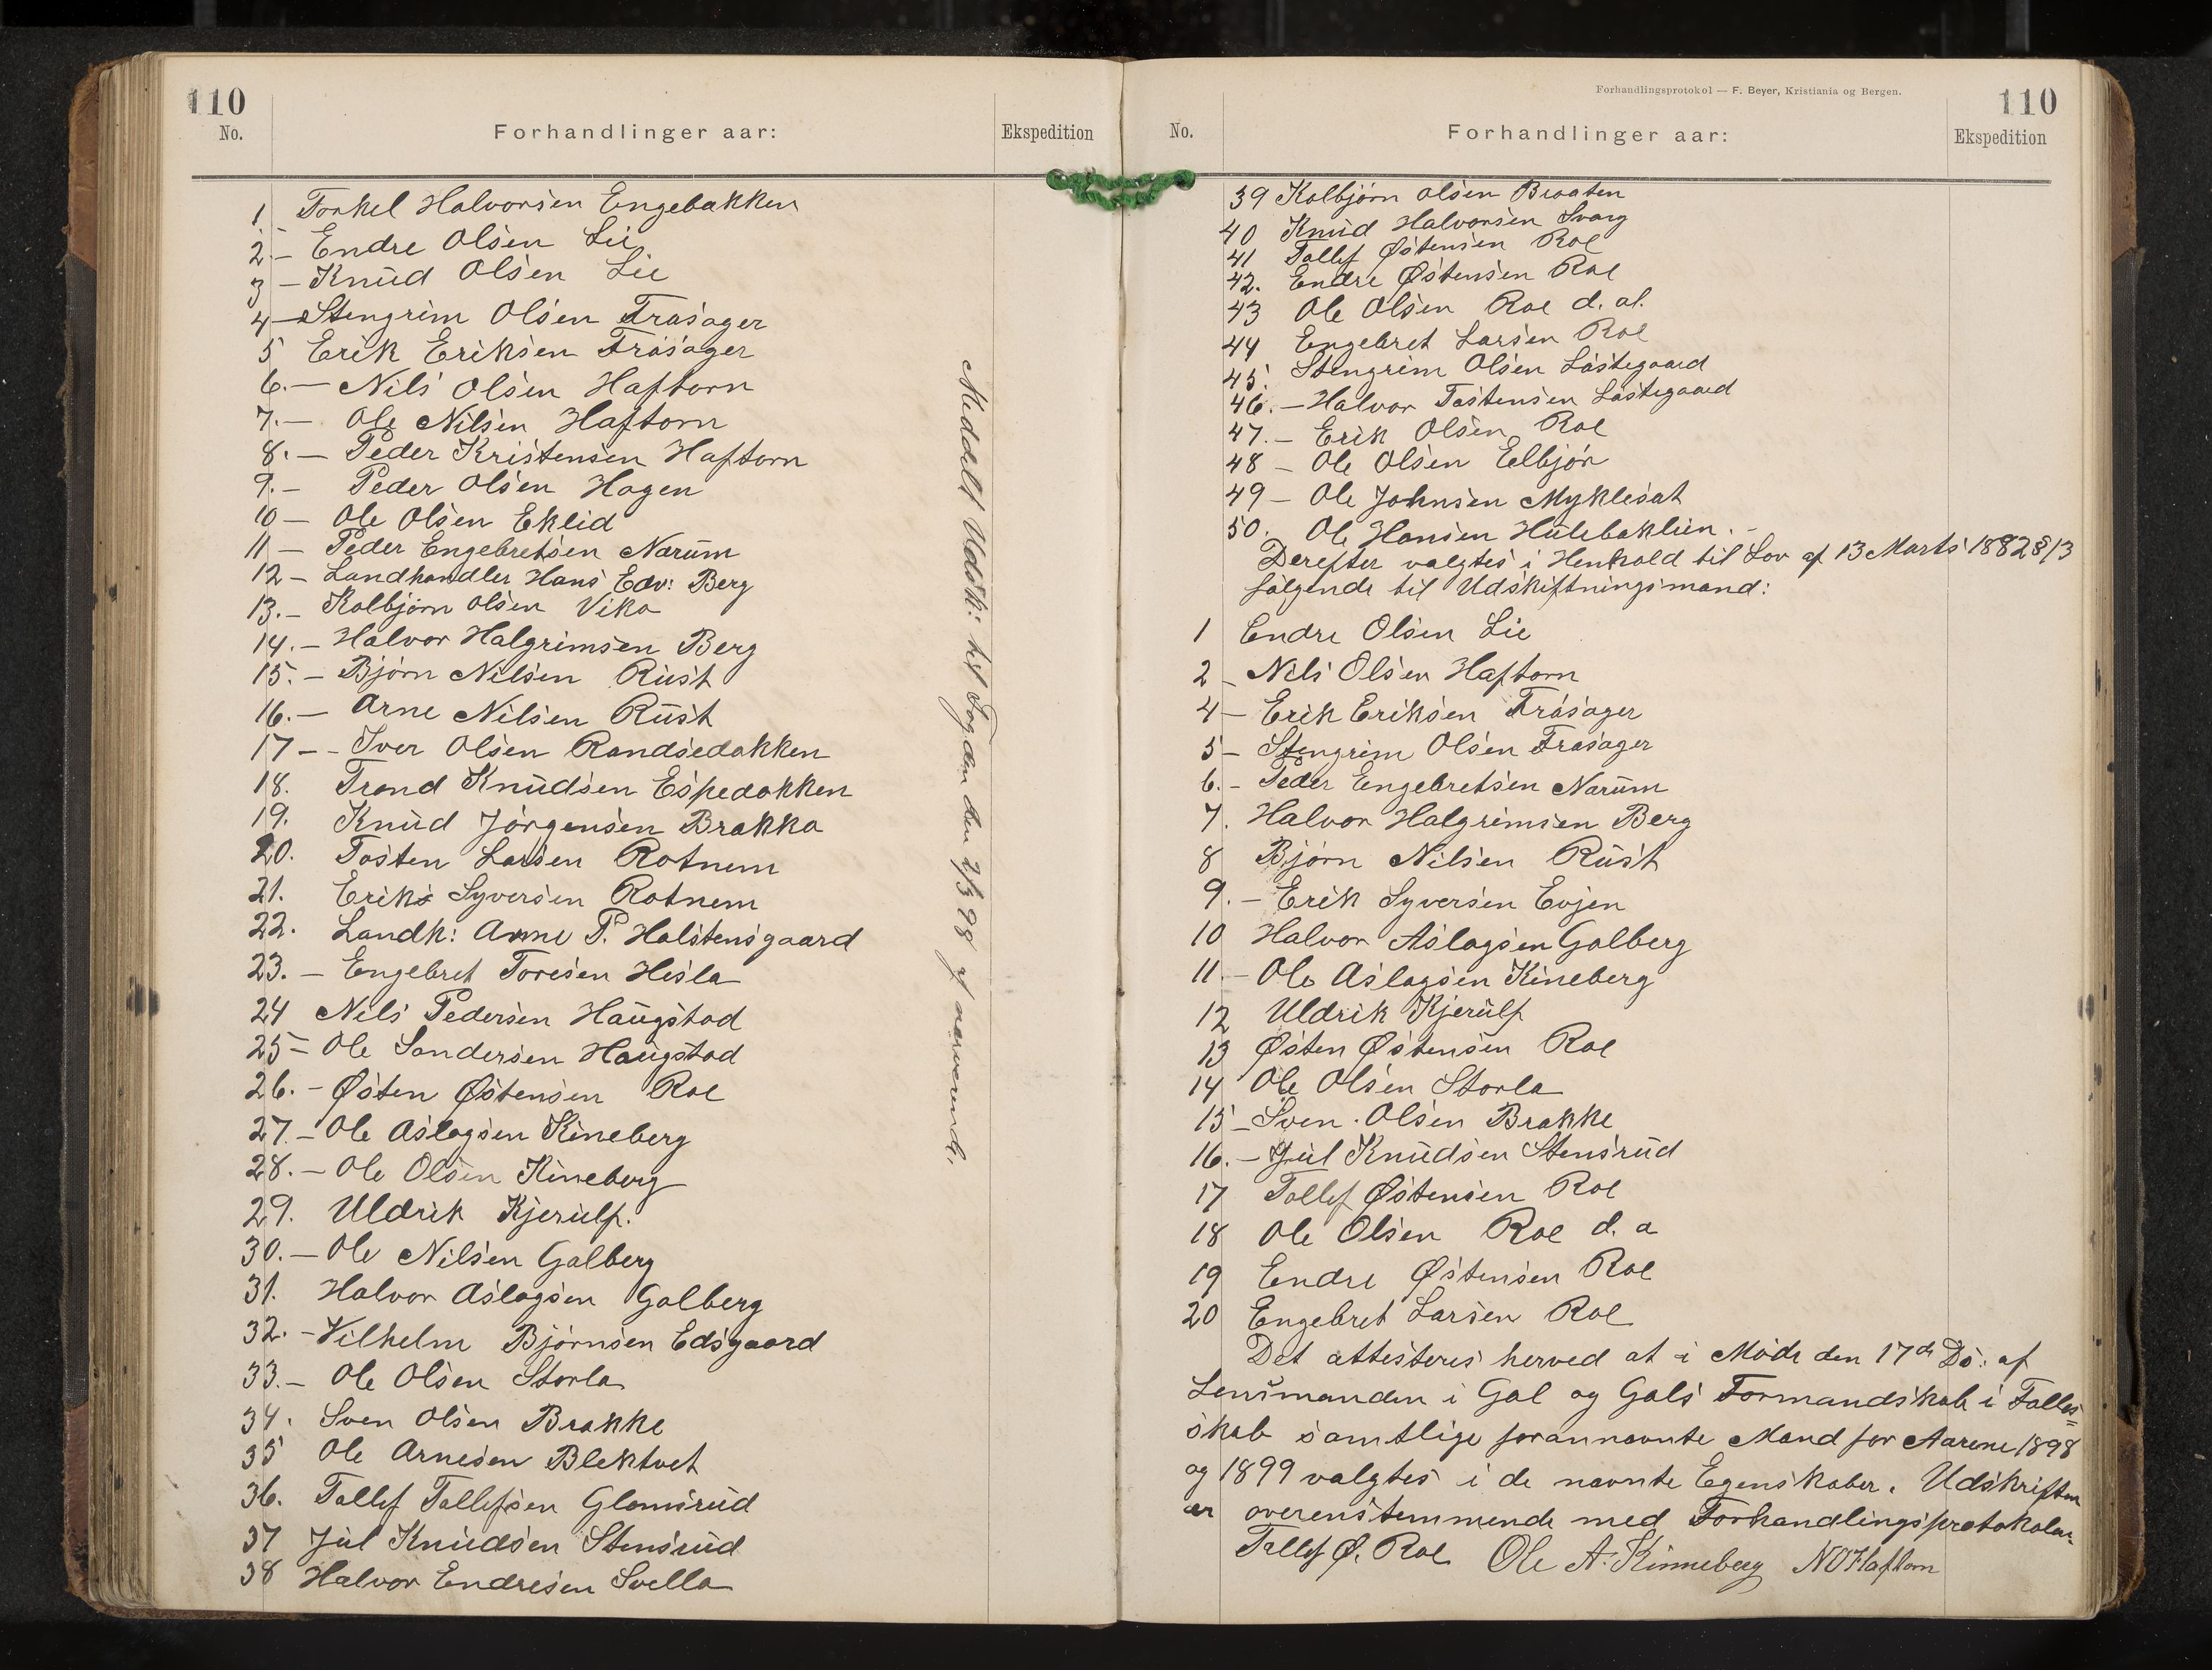 110
No.
Forhandlinger aar:
Ekspedition
1. Torkel Halvorsen Engebakken
2.- Endre Olsen Lie
3 - Knud Olsen Lie
4 - Stengrim Olsen Trøsager
5 Erik Eriksen Trøsager
6.- Nils Olsen Haftorn
7.- Ole Nilsen Haftorn
8.- Peder Kristensen Haftorn
9.- Peder Olsen Hagen
10 - Ole Olsen Eklid
11 - Peder Engebretsen Narum
12 - Landhandler Hans Edv: Berg
13.- Kolbjørn Olsen Viko
14.- Halvor Halgrimsen Berg
15.- Bjørn Nilsen Rust
16.- Arne Nilsen Rust
17 - - Iver Olsen Randsedokken
18. Trond Knudsen Espedokken
19. Knud Jørgensen Brakka
20. Tosten Larsen Rotnem
21. Erik Syversen Rotnem
22. Landh: Arne P. Holstensgaard
23.- Engebret Toresen Hesla
24 Nils Pedersen Haugstad
25 - Ole Sandersen Haugstad
26.- Østen Østensen Roe
27.- Ole Aslagsen Kineberg
28.- Ole Olsen Kineberg
29. Uldrik Kjerulf.
30.- Ole Nilsen Golberg
31. Halvor Aslagsen Golberg
32.- Vilhelm Bjørnsen Edsgaard
33.- Ole Olsen Storla
34. Sven Olsen Brakke
35 Ole Arnesen Blektvet
36. Tollef Tollefsen Glomsrud
37 Jul Knudsen Stensrud
38 Halvor Endresen Svella
Meddelt Udsk: til Fogden den 2/3 98 nærværende.
Forhandlingsprotokol — F. Beyer, Kristiania og Bergen.
110
No.
Forhandlinger aar:
Ekspedition
39 Kolbjørn Olsen Braaten
40 Knud Halvorsen Svarg
41 Tollef Østensen Roe
42. Endre Østensen Roe
43 Ole Olsen Roe d. al.
44 Engebret Larsen Roe
45. Stengrim Olsen Løstegaard
46.- Halvor Tostensen Løstegaard
47.- Erik Olsen Roe
48 - Ole Olsen Eelbjør
49 - Ole Johnsen Myklesat
50. Ole Hansen Hulebaklien.-
Derefter valgtes i Henhold til Lov af 13 Marts 1882 § 13
følgende til Udskiftningsmænd:
1 Endre Olsen Lie
2 - Nils Olsen Haftorn
4 - Erik Eriksen Trøsager
5 - Stengrim Olsen Trøsager
6.- Peder Engebretsen Narum
7. Halvor Halgrimsen Berg
8 Bjørn Nilsen Rust
9.- Erik Syversen Evjen
10 Halvor Aslagsen Golberg
11.- Ole Aslagsen Kineberg
12 Uldrik Kjerulf
13 Østen Østensen Roe
14 Ole Olsen Storla
15 - Sven Olsen Brakke
16.- Jul Knudsen Stensrud
17 Tollef Østensen Roe
18 Ole Olsen Roe d. a
19 Endre Østensen Roe
20 Engebret Larsen Roe
Det attesteres herved at i Møde den 17de Ds. af
Lensmanden i Gol og Gols Formandskab i Fælles=
skab samtlige forannævnte Mænd for Aarene 1898
og 1899 valgtes i de nævnte Egenskaber. Udskriften
er overenstemmende med Forhandlingsprotokolen.
Tollef Ø. Roe Ole A. Kinneberg N O Haftorn